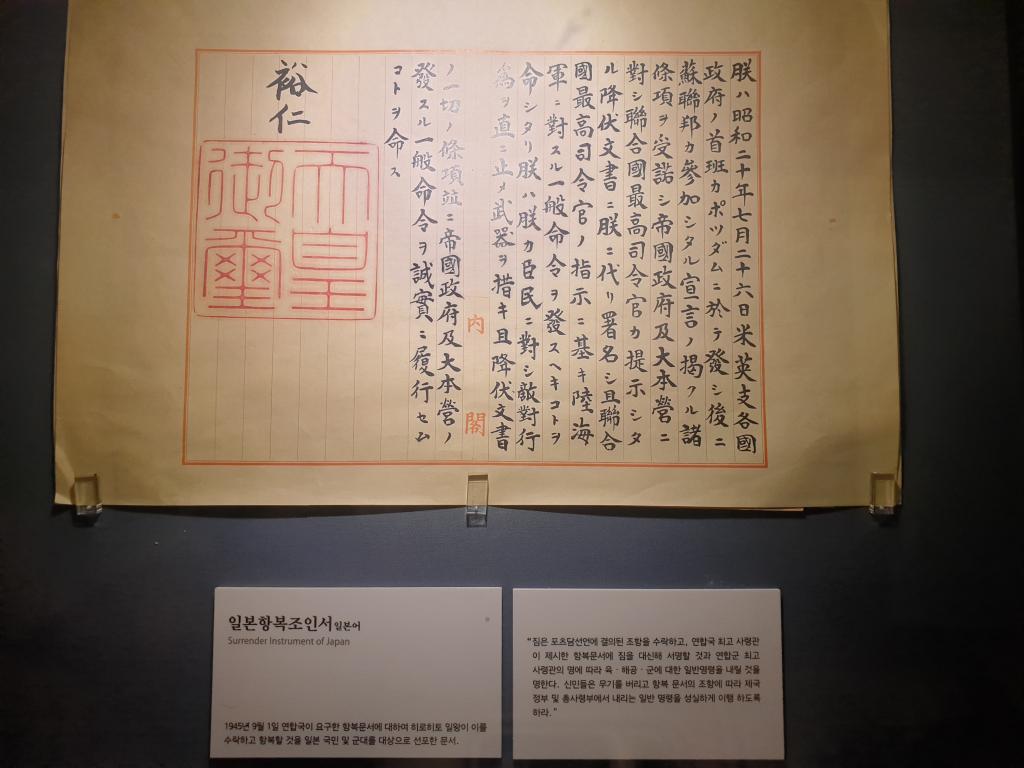 朕ハ昭和二十年七月二十六日米英支各國
政府ノ首班カポツダムニ於テ發シ後ニ
蘇聯邦カ參加シタル宣言ノ掲クル諸
條項ヲ受諾シ帝國政府及大本營ニ
對シ聯合國最高司令官カ提示シタ
ル降伏文書ニ朕ニ代リ署名シ且聯合
國最高司令官ノ指示ニ基キ陸海
軍ニ對スル一般命令ヲ發スヘキコトヲ
命シタリ朕ハ朕カ臣民ニ對シ敵對行
為ヲ直ニ止メ武器ヲ措キ且降伏文書
内閣
ノ一切ノ條項竝ニ帝國政府及大本營ノ
發スル一般命令ヲ誠實ニ履行セム
コトヲ命ス
裕仁
天皇
御璽
일본항복조인서 일본어
Surrender Instrument of Japan
1945년 9월 1일 연합국이 요구한 항복문서에 대하여 히로히토 일왕이 이를
수락하고 항복할 것을 일본 국민 및 군대를 대상으로 선포한 문서.
"짐은 포츠담선언에 결의된 조항을 수락하고, 연합국 최고 사령관
이 제시한 항복문서에 짐을 대신해 서명할 것과 연합군 최고
사령관의 명에 따라 육 · 해공 · 군에 대한 일반명령을 내릴 것을
명한다. 신민들은 무기를 버리고 항복 문서의 조항에 따라 제국
정부 및 총사령부에서 내리는 일반 명령을 성실하게 이행 하도록
하라."